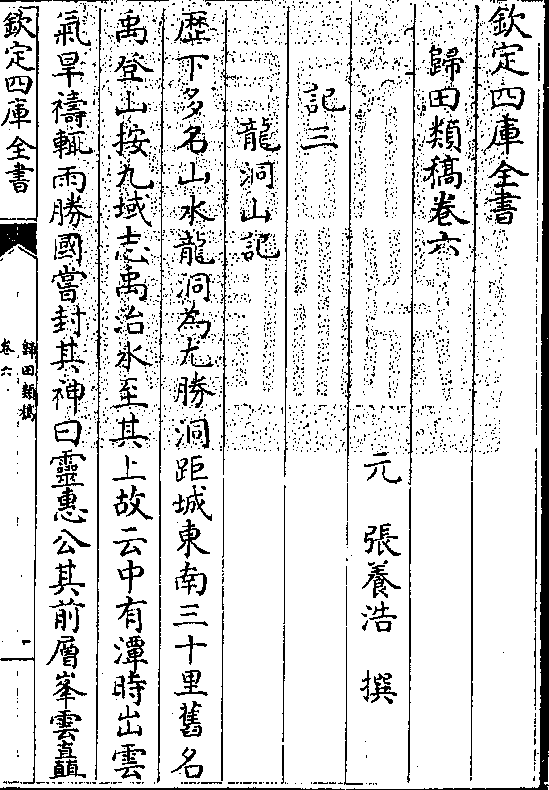 欽定四庫全書
歸田類稿卷六
元　張養浩　撰
記三
龍洞山記
歴下多名山水龍洞為尤勝洞距城東南三十里舊名
禹登山按九域志禹治水至其上故云中有潭時出雲
氣旱禱輒雨勝國嘗封其神曰靈惠公其前層峯雲矗
欽定四庫全書
歸田類稿
卷六
一